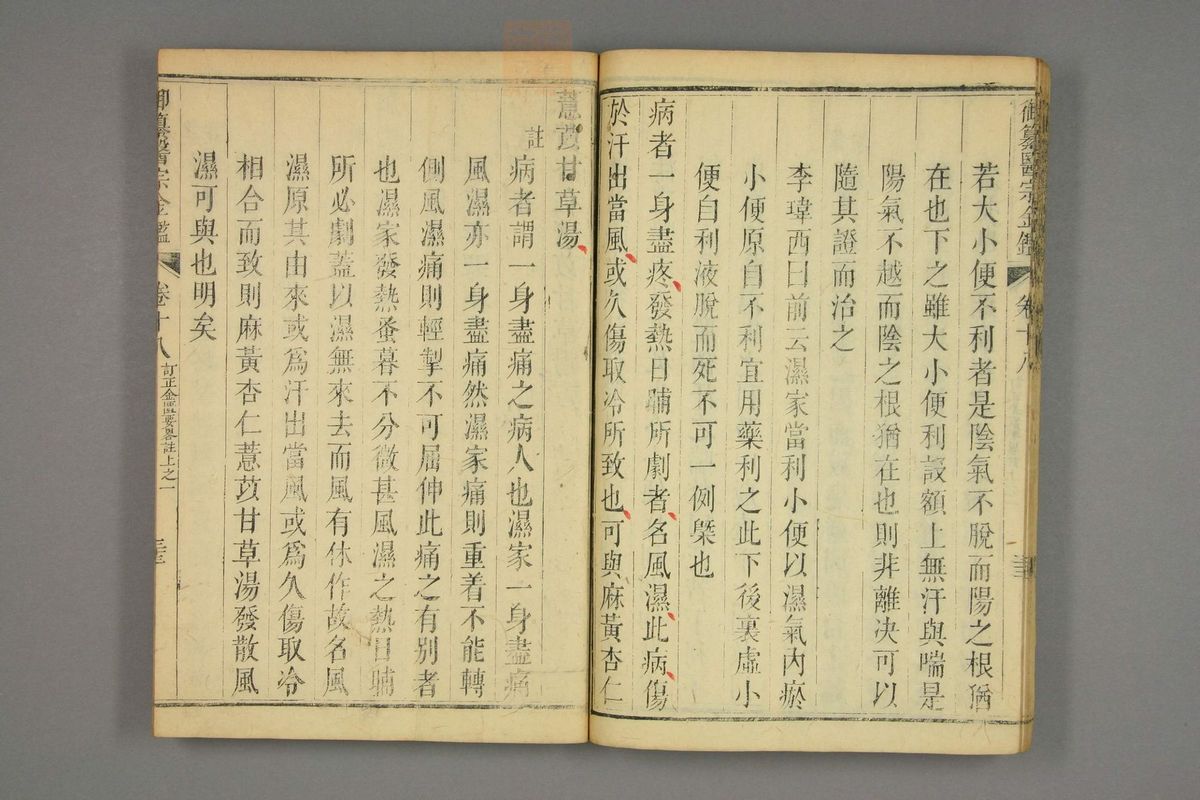 御纂醫宗金鑑 卷十八
若大小便不利者是陰氣不脫而陽之根猶
在也下之雖大小便利設額上無汗與喘是
陽氣不越而陰之根猶在也則非離決可以
隨其證而治之
李瑋西曰前云濕家當利小便以濕氣內瘀
小便原自不利宜用藥利之此下後裏虛小
便自利液脫而死不可一例槩也
病者一身盡疼發熱日晡所劇者名風濕此病傷
於汗出當風或久傷取冷所致也可與麻黃杏仁
薏苡甘草湯
註 病者謂一身盡痛之病人也濕家一身盡痛
風濕亦一身盡痛然濕家痛則重着不能轉
側風濕痛則輕掣不可屈伸此痛之有別者
也濕家發熱蚤暮不分微甚風濕之熱日晡
所必劇蓋以濕無來去而風有休作故名風
濕原其由來或為汗出當風或為久傷取冷
相合而致則麻黃杏仁薏苡甘草湯發散風
濕可與也明矣
御纂醫宗金鑑 卷十八 訂正金匱要畧註上之一